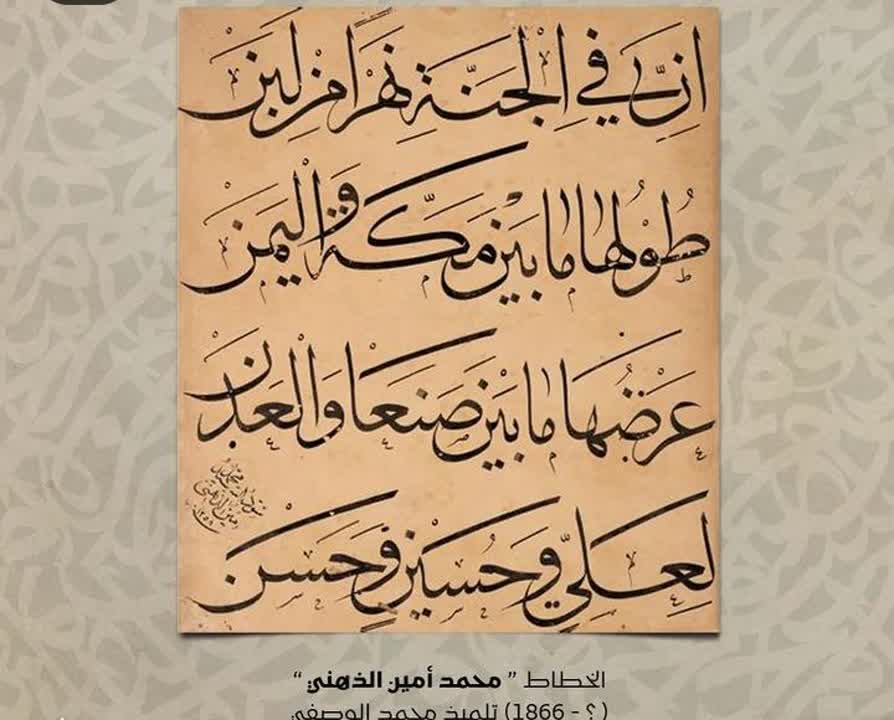 اِنَّ فِي الْجَنَّةِ نَهَرًا مِنْ لَبَنْ
طُولُهَا مَا بَيْنَ مَكَّةَ وَالْيَمَنْ
عَرْضُهَا مَا بَيْنَ صَنْعَا وَالْعَدَنْ
لِعَلِيٍّ وَحُسَيْنٍ وَحَسَنْ
الخطاط " محمد أمين الذهني "
(؟ - 1866) تلميذ محمد الوصفي